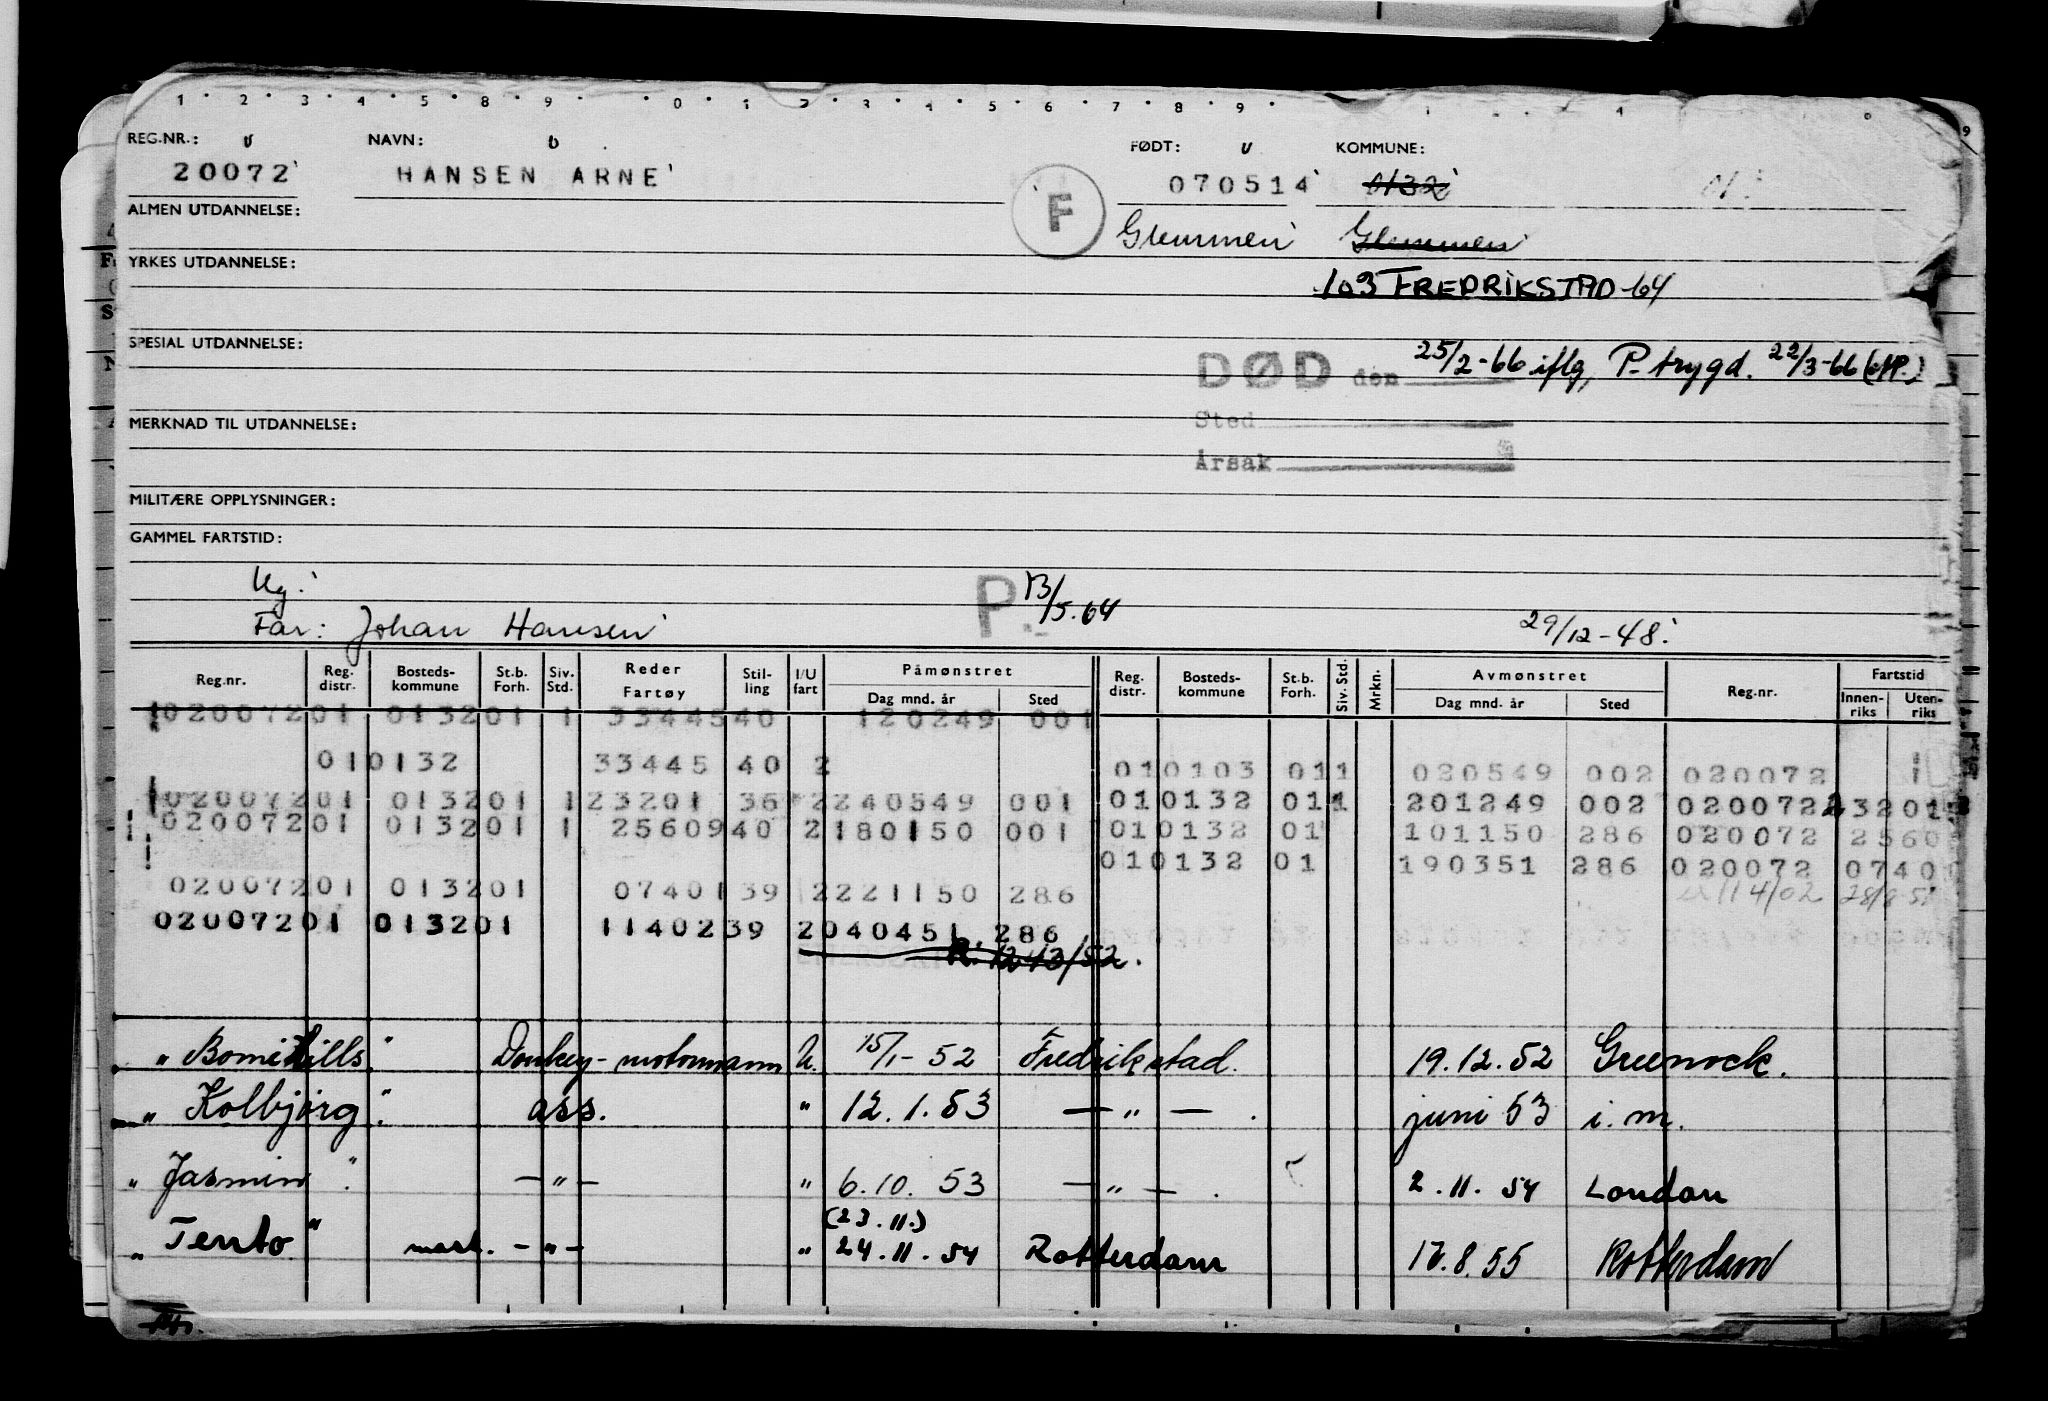 REG.NR.: NAVN: FØDT: KOMMUNE:
20072 HANSEN ARNE F 070514 0132 01
ALMEN UTDANNELSE: Glemmen Glemmen
YRKES UTDANNELSE: 103 FREDRIKSTAD-64
SPESIAL UTDANNELSE: DØD den 25/2-66 iflg, P-trygd. 22/3-66
MERKNAD TIL UTDANNELSE: Sted
Årsak
MILITÆRE OPPLYSNINGER:
GAMMEL FARTSTID:
Ug.
Far: Johan Hansen P. 13/5.64 29/12-48.
Reg.nr. Reg. distr. Bosteds-kommune St.b. Forh. Siv. Std. Reder Fartøy Stil-ling I/U fart Påmønstret Dag mnd. år Sted Reg. distr. Bosteds-kommune St.b. Forh. Siv. Std. Mrkn. Avmønstret Dag mnd. år Sted Reg.nr. Fartstid Innen-riks Uten-riks
020072 01 0132 01 1 33445 40 120249 001
01 0132 33445 40 2 01 0103 01 1 020549 002 020072
020072 01 0132 01 1 23201 36 2 240549 001 01 0132 01 1 201249 002 020072 23201
020072 01 0132 01 1 25609 40 2 180150 001 01 0132 01 101150 286 020072 2560
01 0132 01 190351 286 020072 0740
020072 01 0132 01 07401 39 2 221150 286 114/02 28/8-51
020072 01 0132 01 11402 39 2 040451 286
R. 1243/52.
"Bomi Hills" Donkey-motormann U. 15/1-52 Fredrikstad. 19.12.52 Greenock.
"Kolbjørg" ass. " 12.1.53 — " — . juni 53 i.m.
"Jasmin" — " — " 6.10.53 — " — . 2.11.54 London
(23.11.)
"Tento" mask. — " — " 24.11.54 Rotterdam 17.8.55 Rotterdam